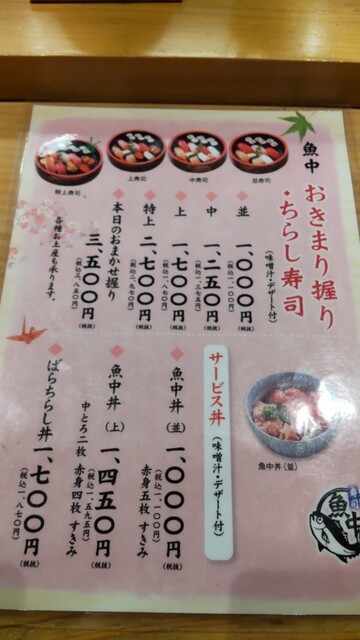 魚中
おきまり握り
・ちらし寿司
（味噌汁・デザート付）
並寿司
中寿司
上寿司
特上寿司
並 一、〇〇〇円（税抜）
（税込一、一〇〇円）
中 一、二五〇円（税抜）
（税込一、三七五円）
上 一、七〇〇円（税抜）
（税込一、八七〇円）
特上 二、七〇〇円（税抜）
（税込二、九七〇円）
本日のおまかせ握り
三、五〇〇円（税抜）
（税込三、八五〇円）
各種お土産も承ります。
サービス丼（味噌汁・デザート付）
魚中丼（並）
魚中丼（並） 一、〇〇〇円（税抜）
（税込一、一〇〇円）
赤身五枚 すきみ
魚中丼（上） 一、四五〇円（税抜）
（税込一、五九五円）
中とろ二枚 赤身四枚 すきみ
ばらちらし丼 一、七〇〇円（税抜）
（税込一、八七〇円）
魚中